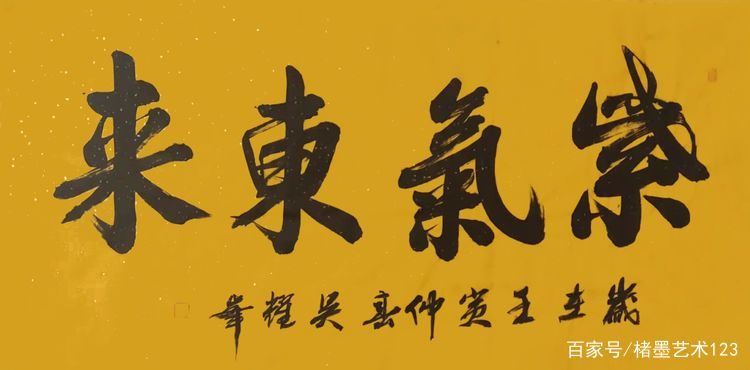 紫氣東来
歲在壬寅仲春吳耀華
百家号/楮墨艺术123